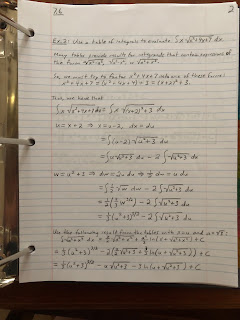 7.6
2
Ex. 3: Use a table of integrals to evaluate: ∫x √(x²+4x+7) dx.
Many tables provide results for integrands that contain expressions of
the form √(a²-x²), √(x²-a²), or √(x²+a²).
So, we must try to factor x²+4x+7 into one of these forms:
x²+4x+7 = (x²+4x+4)+3 = (x+2)²+3.
Thus, we have that
∫x √(x²+4x+7) dx = ∫x √((x+2)²+3) dx
u=x+2 ⇒ x=u-2, dx=du
= ∫(u-2)√(u²+3) du
= ∫u√(u²+3) du - 2∫√(u²+3) du
w=u²+3 ⇒ dw=2u du ⇒ ½ dw = u du
= ½∫√w dw - 2∫√(u²+3) du
= ½(⅔ w^(3/2)) - 2∫√(u²+3) du
= ⅓(u²+3)^(3/2) - 2∫√(u²+3) du
Use the following result from the tables with
= ⅓(u²+3)^(3/2) - 2(
= ⅓(u²+3)^(3/2) - u√(u²+3) - 3 ln(u+√(u²+3)) + C